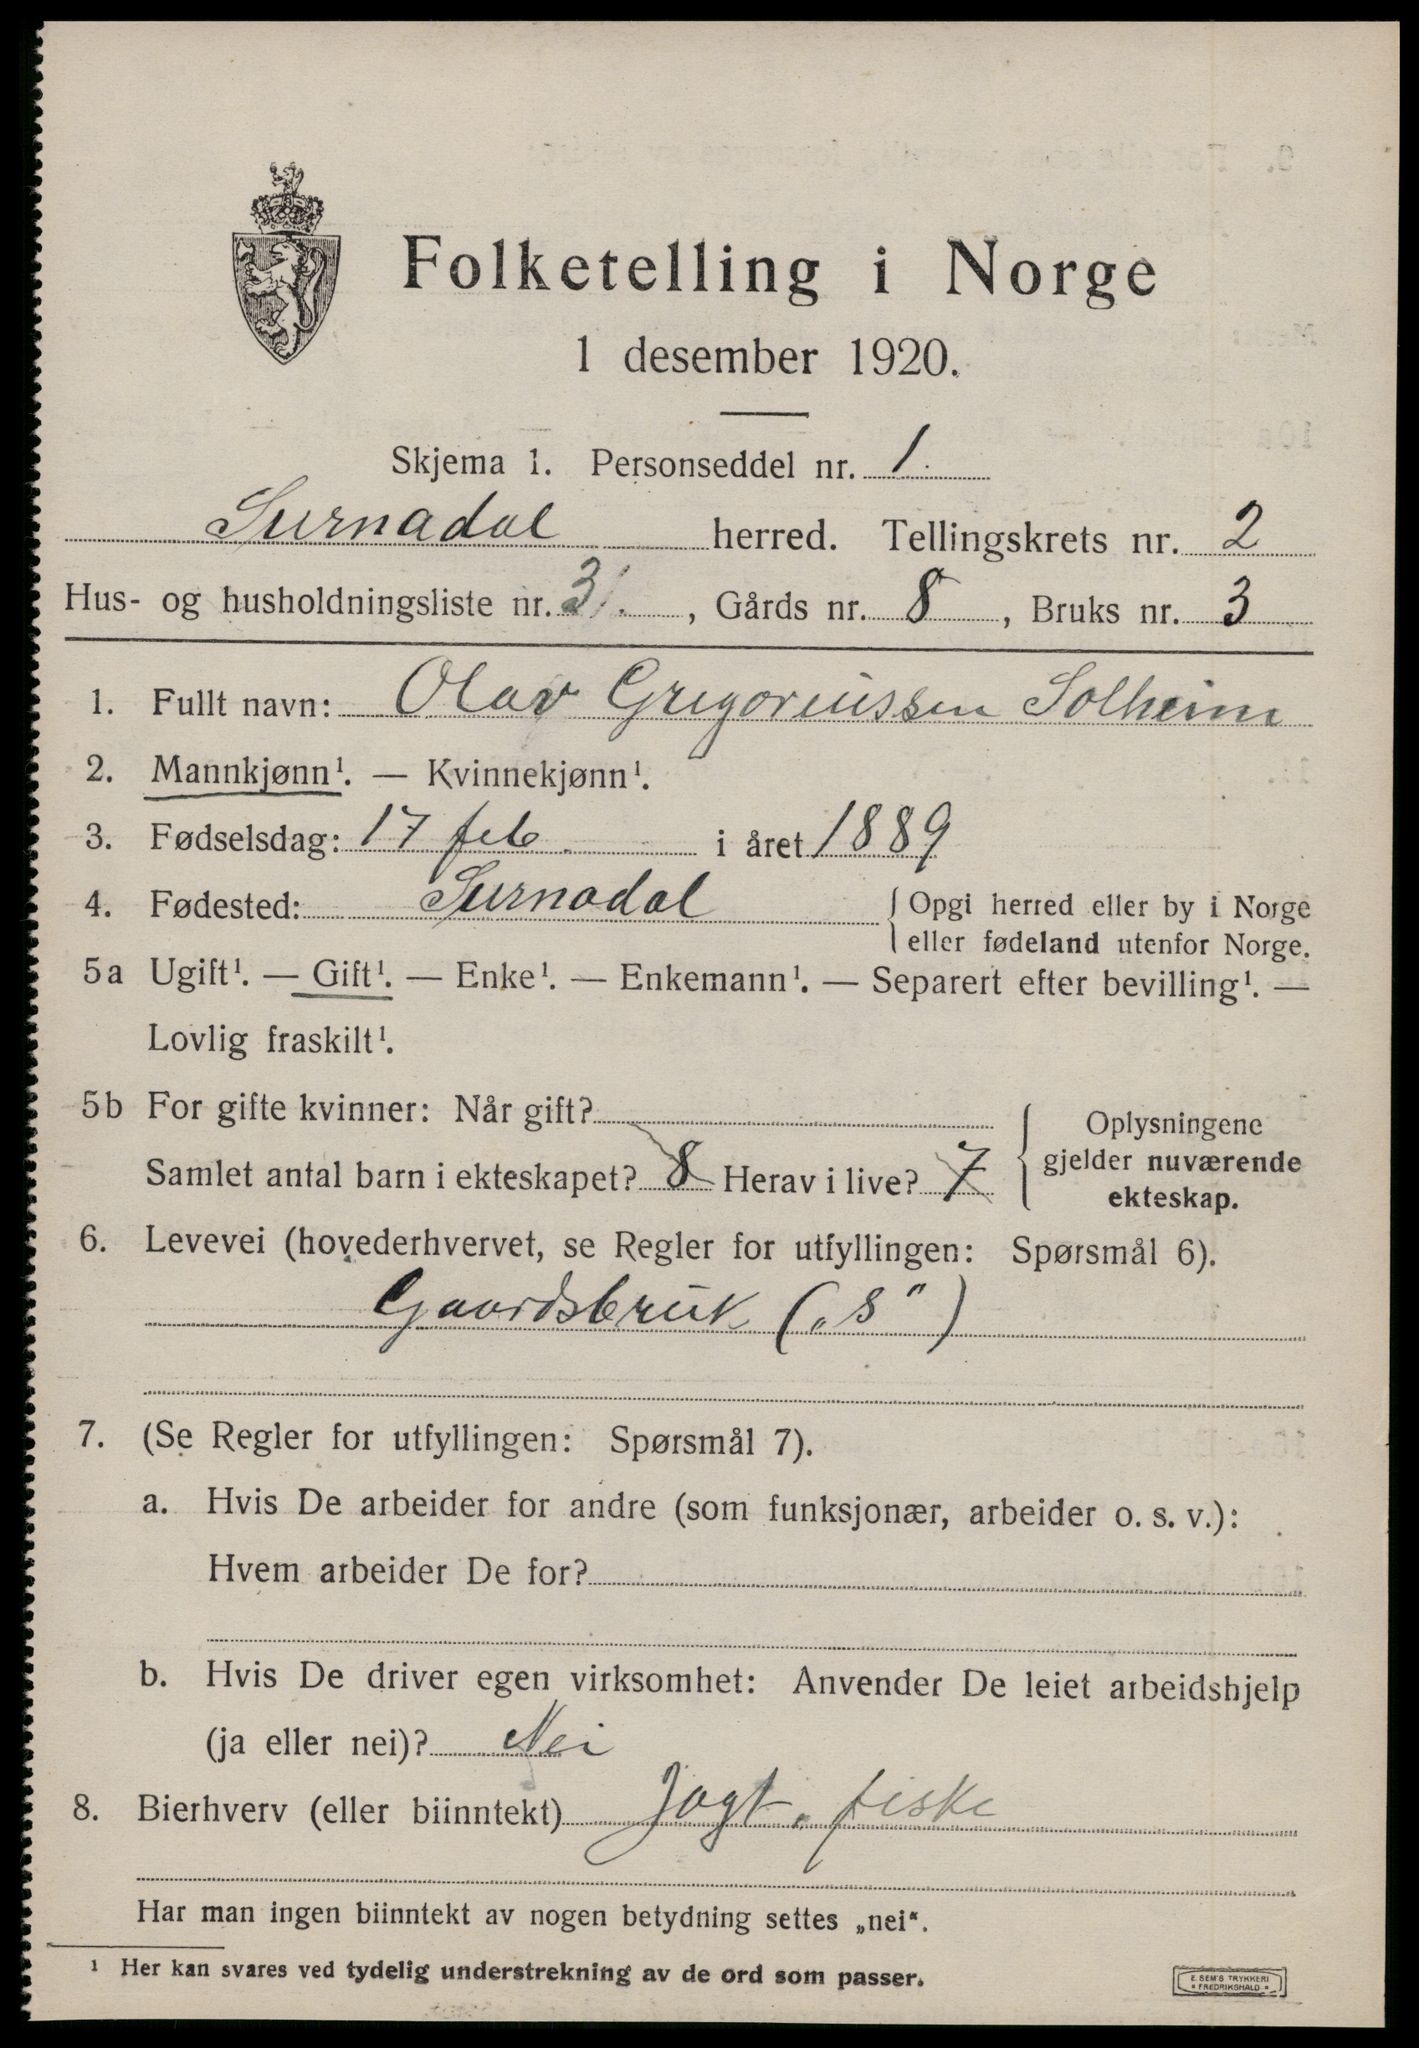 Folketelling i Norge
1 desember 1920.
Skjema 1. Personseddel nr. 1.
Surnadal herred. Tellingskrets nr. 2
Hus- og husholdningsliste nr. 31. , Gårds nr. 8 , Bruks nr. 3
1. Fullt navn: Olav Gregoriussen Solheim
2. Mannkjønn¹. — Kvinnekjønn¹.
3. Fødselsdag: 17 feb. i året 1889
4. Fødested: Surnadal { Opgi herred eller by i Norge
eller fødeland utenfor Norge.
5a Ugift¹. — Gift¹. — Enke¹. — Enkemann¹. — Separert efter bevilling¹. —
Lovlig fraskilt¹.
5b For gifte kvinner: Når gift?
Samlet antal barn i ekteskapet? 8 Herav i live? 7
{ Oplysningene
gjelder nuværende
ekteskap.
6. Levevei (hovederhvervet, se Regler for utfyllingen: Spørsmål 6).
Gaardsbruk („S“)
7. (Se Regler for utfyllingen: Spørsmål 7).
a. Hvis De arbeider for andre (som funksjonær, arbeider o. s. v.):
Hvem arbeider De for?
b. Hvis De driver egen virksomhet: Anvender De leiet arbeidshjelp
(ja eller nei)? Nei
8. Bierhverv (eller biinntekt) Jagt. fiske
Har man ingen biinntekt av nogen betydning settes „nei“.
¹ Her kan svares ved tydelig understrekning av de ord som passer.
E. SEM'S TRYKKERI
• FREDRIKSHALD •